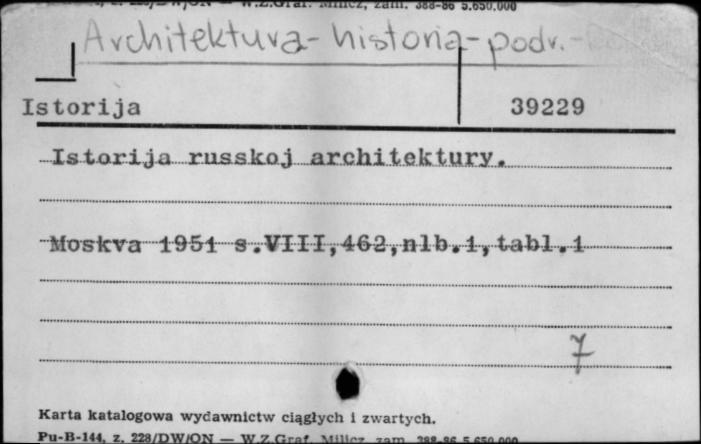 Pu-B-144, z. 228/DW/ON — W.Z.Graf. Milicz, zam. 388-86 5.650.000
Architektura - historia - podr. -
Istorija 39229
Istorija russkoj architektury.
Moskva 1951 s.VIII,462,nlb.1,tabl.1
7
Karta katalogowa wydawnictw ciągłych i zwartych.
Pu-B-144, z. 228/DW/ON — W.Z.Graf. Milicz, zam. 388-86 5.650.000